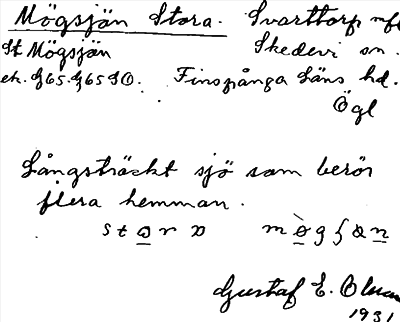 Mögsjön Stora. Svarttorp
St Mögsjön Skedevi sn.
ek. G65. G65 SO. Finspånga läns hd.
Ögl
Långsträckt sjö som berör
flera hemman.
Gustaf E. Olsson
1931